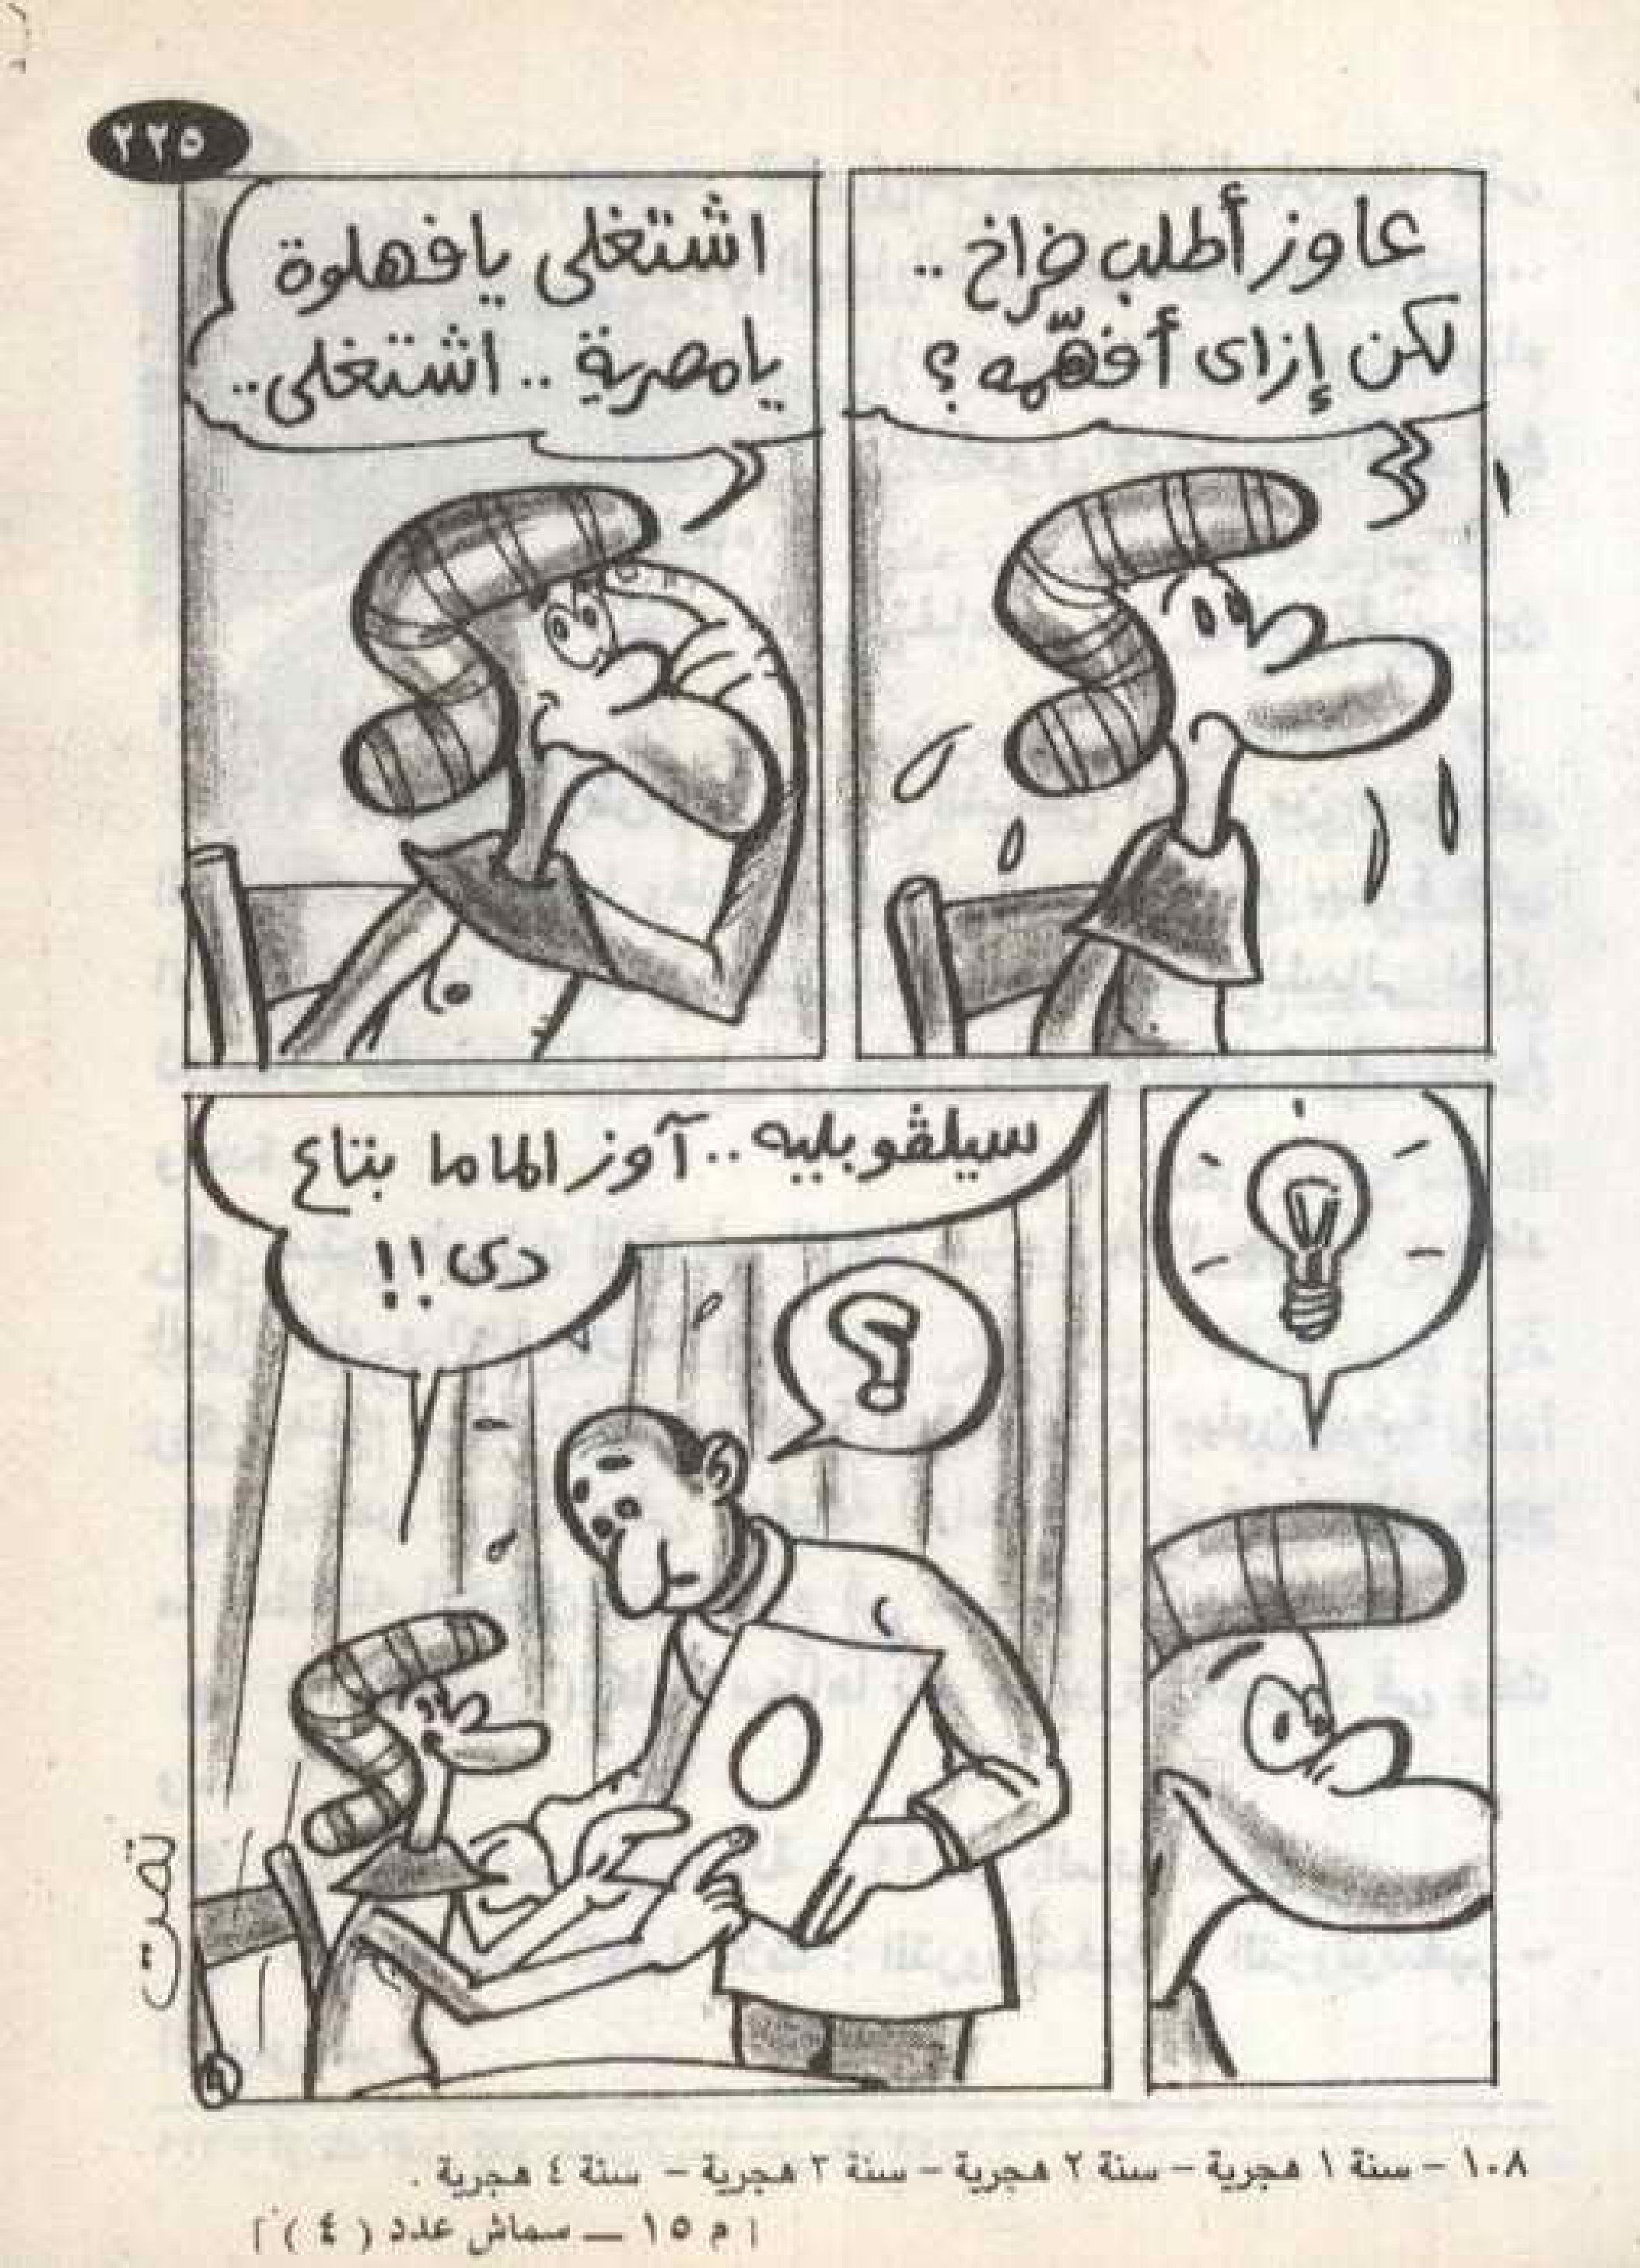 ٢٢٥
عاوز أطلب فراخ ..
لكن إزاى أفهّمه ؟
اشتغلى يافهلوة
يامصرية .. اشتغلى ..
سيلڤو بليه .. آوز الماما بتاع
دى !!
؟
تمت
١٠٨ - سنة ١ هجرية - سنة ٢ هجرية - سنة ٣ هجرية - سنة ٤ هجرية .
[ م ١٥ ــ سماش عدد ( ٤ ) ]